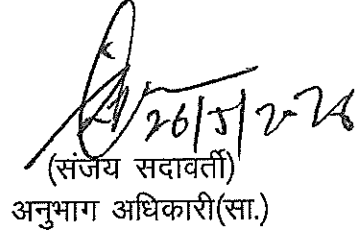 26/5/2026
(संजय सदावर्ती)
अनुभाग अधिकारी(सा.)